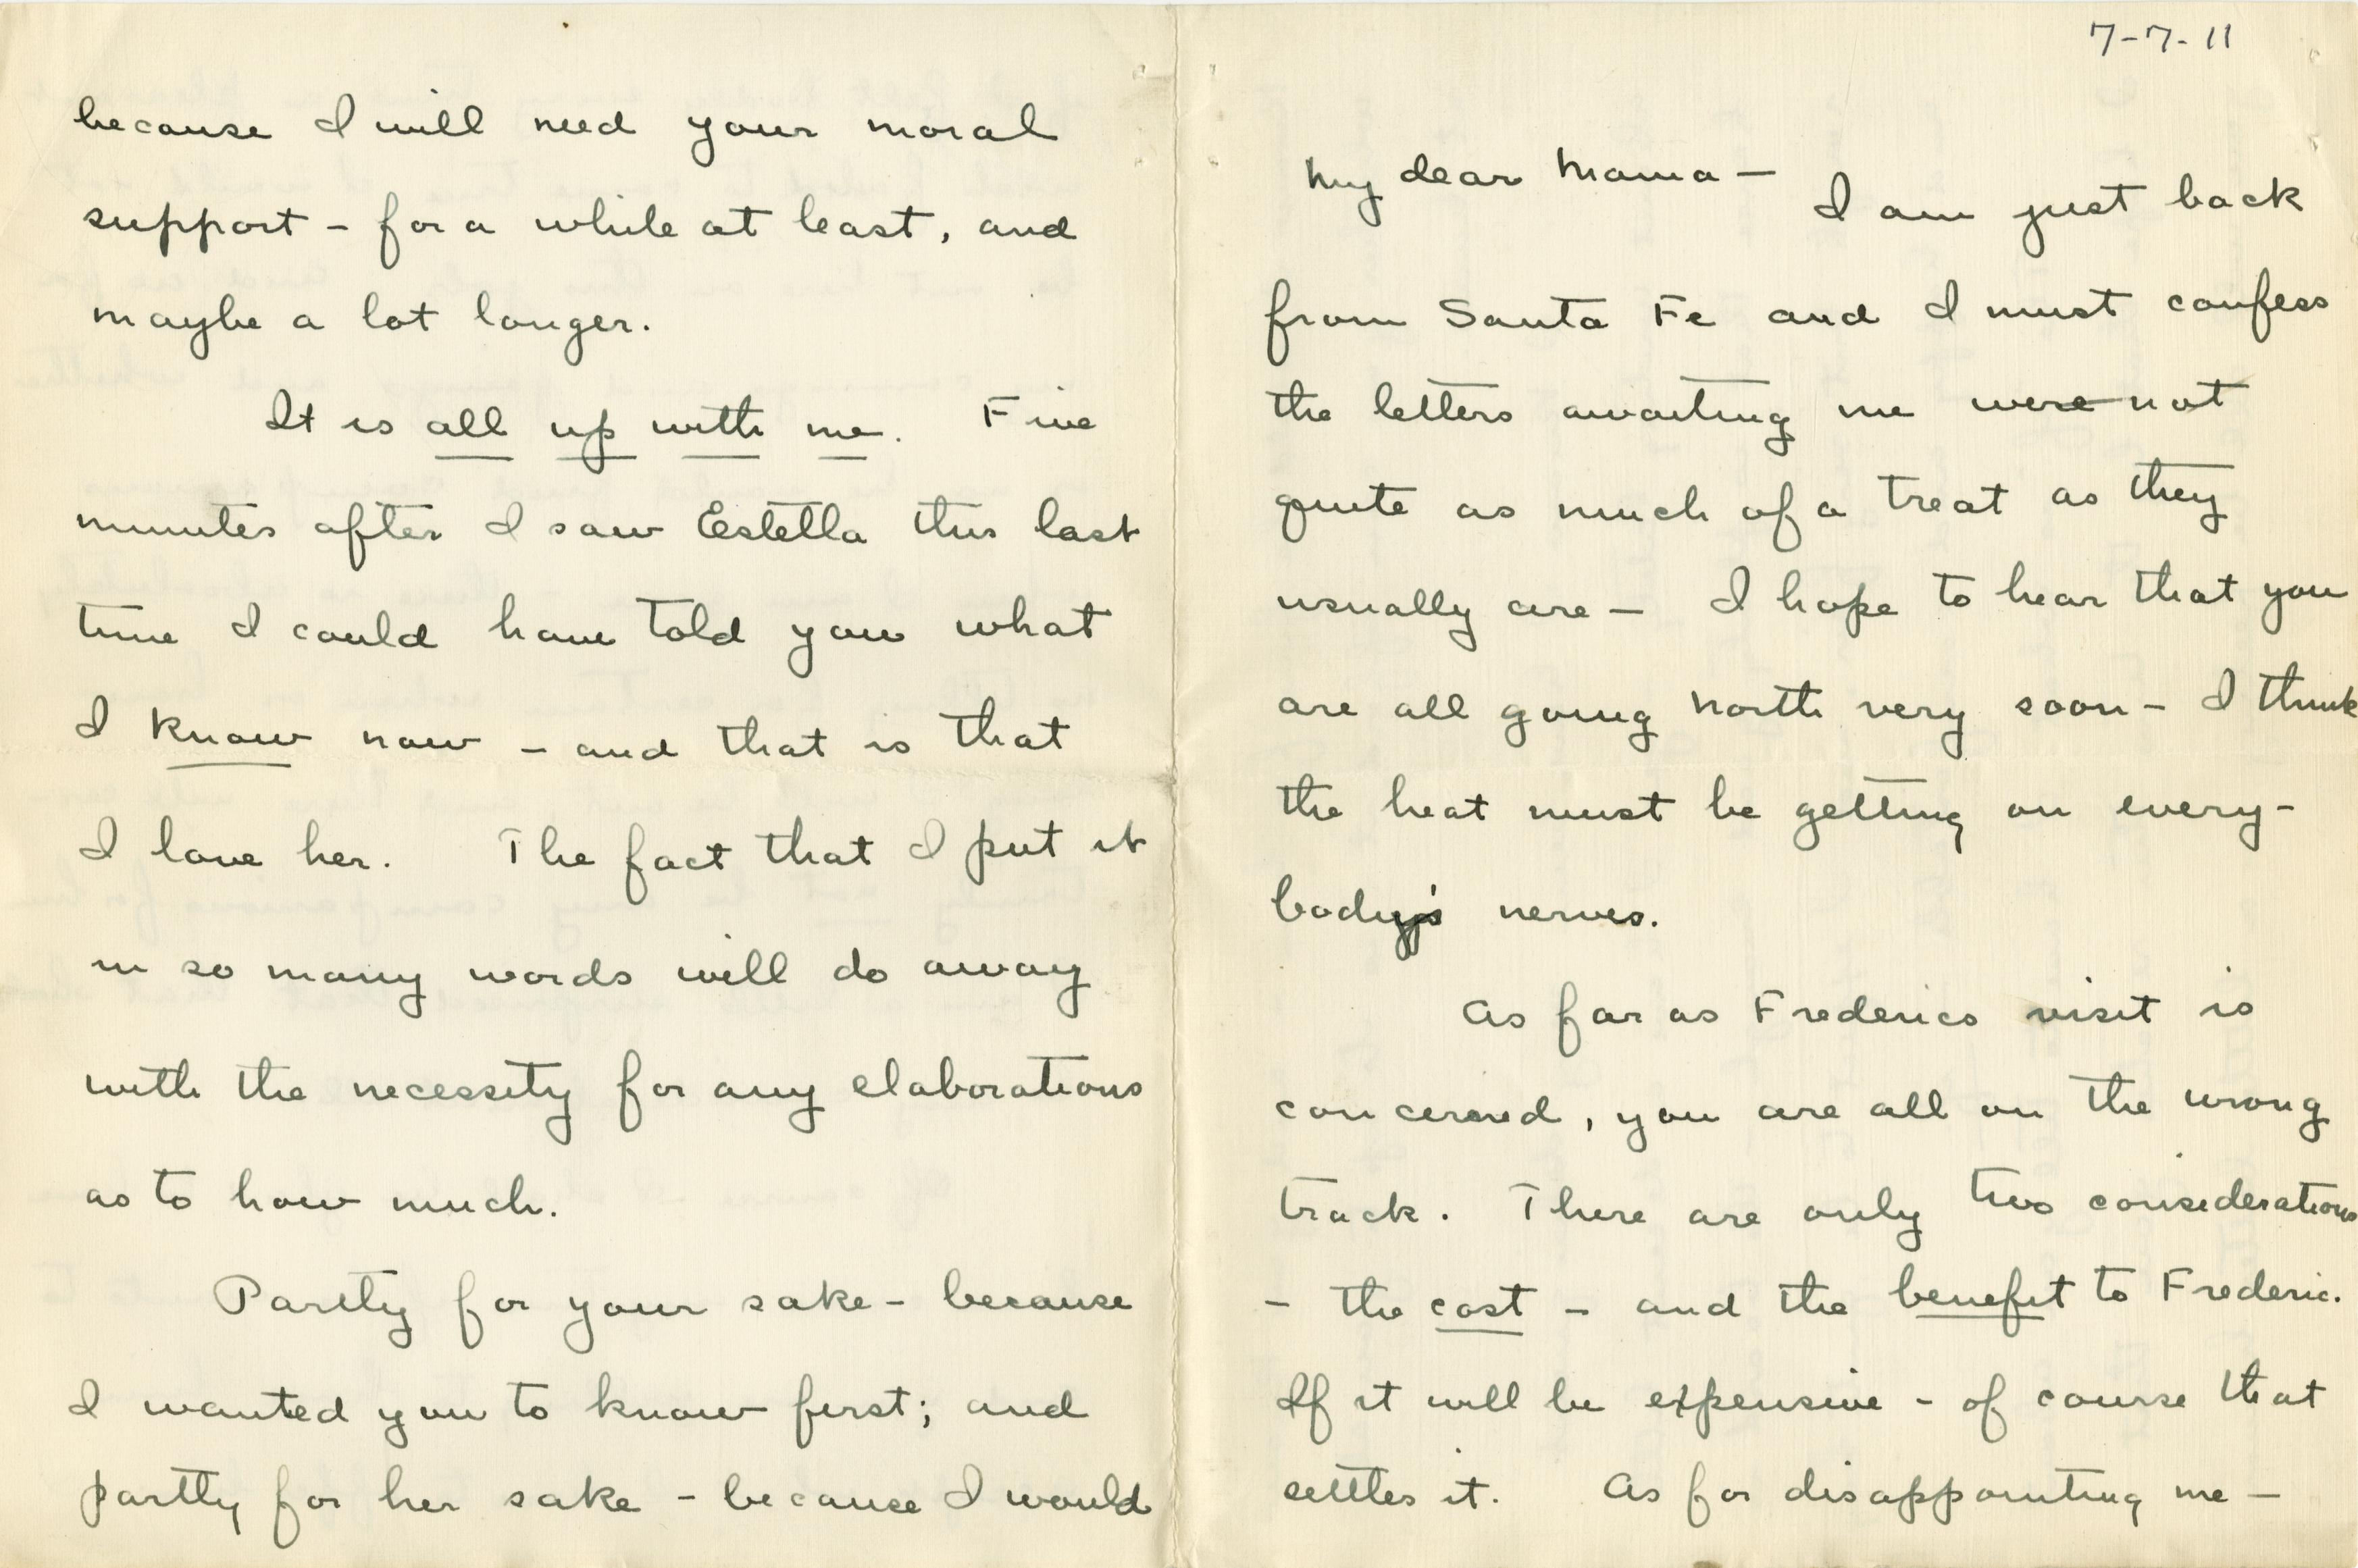 7-7-11
My dear Mama -
I am just back
from Santa Fe and I must confess
the letters awaiting me were not
quite as much of a treat as they
usually are - I hope to hear that you
are all going north very soon - I think
the heat must be getting on every-
body's nerves.
As far as Frederics visit is
concerned, you are all on the wrong
track. There are only two considerations
- the cost - and the benefit to Frederic.
If it will be expensive - of course that
settles it. As for disappointing me -
because I will need your moral
support - for a while at least, and
maybe a lot longer.
It is all up with me. Five
minutes after I saw Estella this last
time I could have told you what
I know now - and that is that
I love her. The fact that I put it
in so many words will do away
with the necessity for any elaborations
as to how much.
Partly for your sake - because
I wanted you to know first; and
partly for her sake - because I would